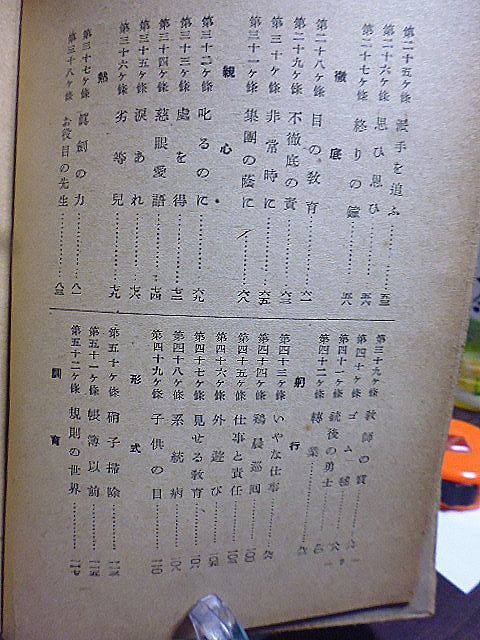 第二十五ケ條 派手を追ふ…………五三
第二十六ケ條 思ひ思ひ…………五六
第二十七ケ條 終りの鐘…………五八
徹底
第二十八ケ條 目の敎育…………六一
第二十九ケ條 不徹底の責…………六三
第三十ケ條 非常時に…………六五
第三十一ケ條 集團の蔭に…………六八
親心
第三十二ケ條 叱るのに…………六九
第三十三ケ條 處を得…………七二
第三十四ケ條 慈眼愛語…………七四
第三十五ケ條 淚あれ…………七六
第三十六ケ條 劣等兒…………七九
熱
第三十七ケ條 眞劍の力…………八一
第三十八ケ條 お役目の先生…………八三
第三十九ケ條 敎師の質
第四十ケ條 ゴム毬
第四十一ケ條 銃後の勇士
第四十二ケ條 轉業
躬行
第四十三ケ條 いやな仕事
第四十四ケ條 鷄晨巡囘…………一〇〇
第四十五ケ條 仕事と責任…………一〇三
第四十六ケ條 外遊び…………一〇五
第四十七ケ條 見せる敎育…………一〇六
第四十八ケ條 系統病…………一〇八
第四十九ケ條 子供の目…………一一〇
形式
第五十ケ條 硝子掃除…………一一三
第五十一ケ條 帳簿以前…………一一五
第五十二ケ條 規則の世界…………一一七
訓育